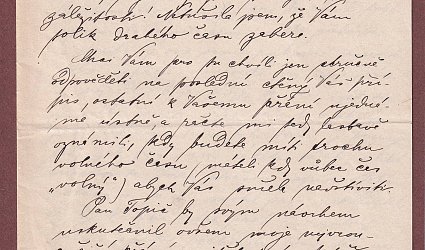 záležitosti! Netušila jsem, že Vám
tolik drahého času zebere.
Chci Vám pro tu chvíli jen stručně
odpověděti na poslední ctěný Váš pří-
pis, ostatní k Vašemu přání ujedná-
me ústně, a račte mi tedy laskavě
oznámiti, kdy budete míti trochu
volného času, máte-li kdy vůbec čas
„volný“, abych Vás směla navštíviti.
Pan Topič by svým návrhem
uskutečnil ovšem moje nejvrou-